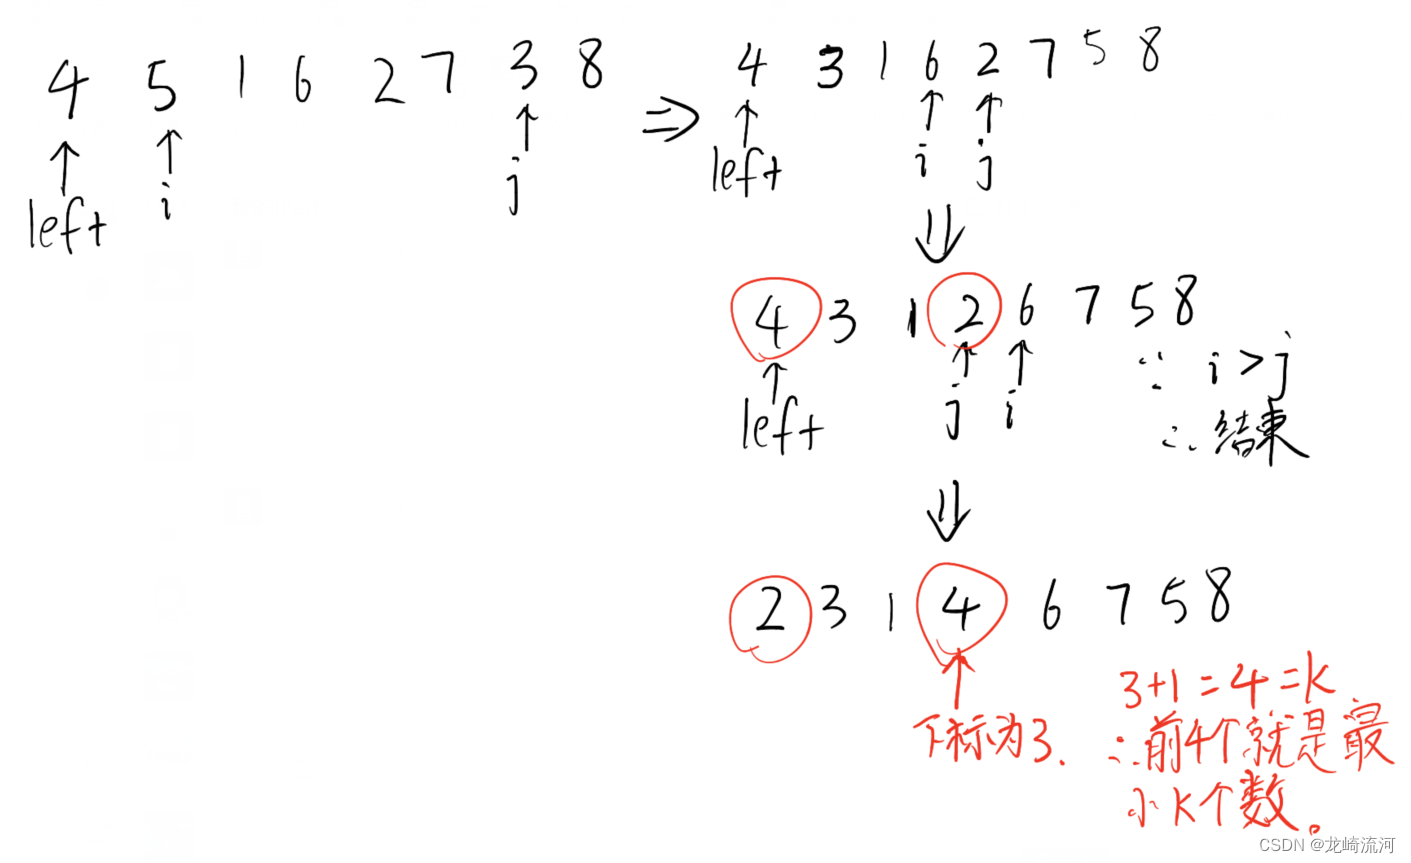 4 5 1 6 2 7 3 8
left i j
⇒
4 3 1 6 2 7 5 8
left i j
⇓
4 3 1 2 6 7 5 8
left j i
∵ i>j
∴ 结束
⇓
2 3 1 4 6 7 5 8
下标为3.
3+1=4=K
∴前4个就是最
小K个数。
CSDN @龙崎流河